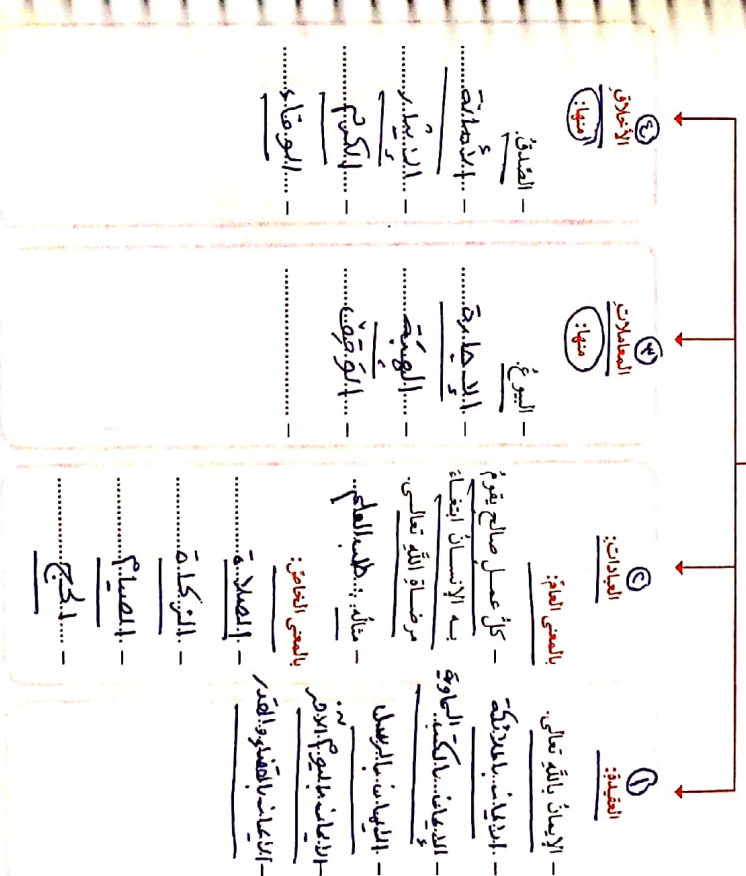 ١
العقيدة:
- الإيمانُ بالله تعالى.
- الايمان بالملائكة
- الايمان بالكتب السماوية
- الايمان بالرسل
- الايمان باليوم الآخر
- الايمان بالقضاء والقدر
٢
العبادات:
بالمعنى العامّ:
- كلُّ عمل صالح يقومُ
به الإنسانُ ابتغاءَ
مرضاةِ اللهِ تعالى.
- مثاله: طلب العلم
بالمعنى الخاصّ:
- الصلاة
- الزكاة
- الصيام
- الحج
٣
المعاملات
منها:
- البيوعُ.
- الإجارة
- الهبة
- الوقف
-
٤
الأخلاق
منها:
- الصّدقُ.
- الأمانة
- الإيثار
- الكرم
- الوفاء